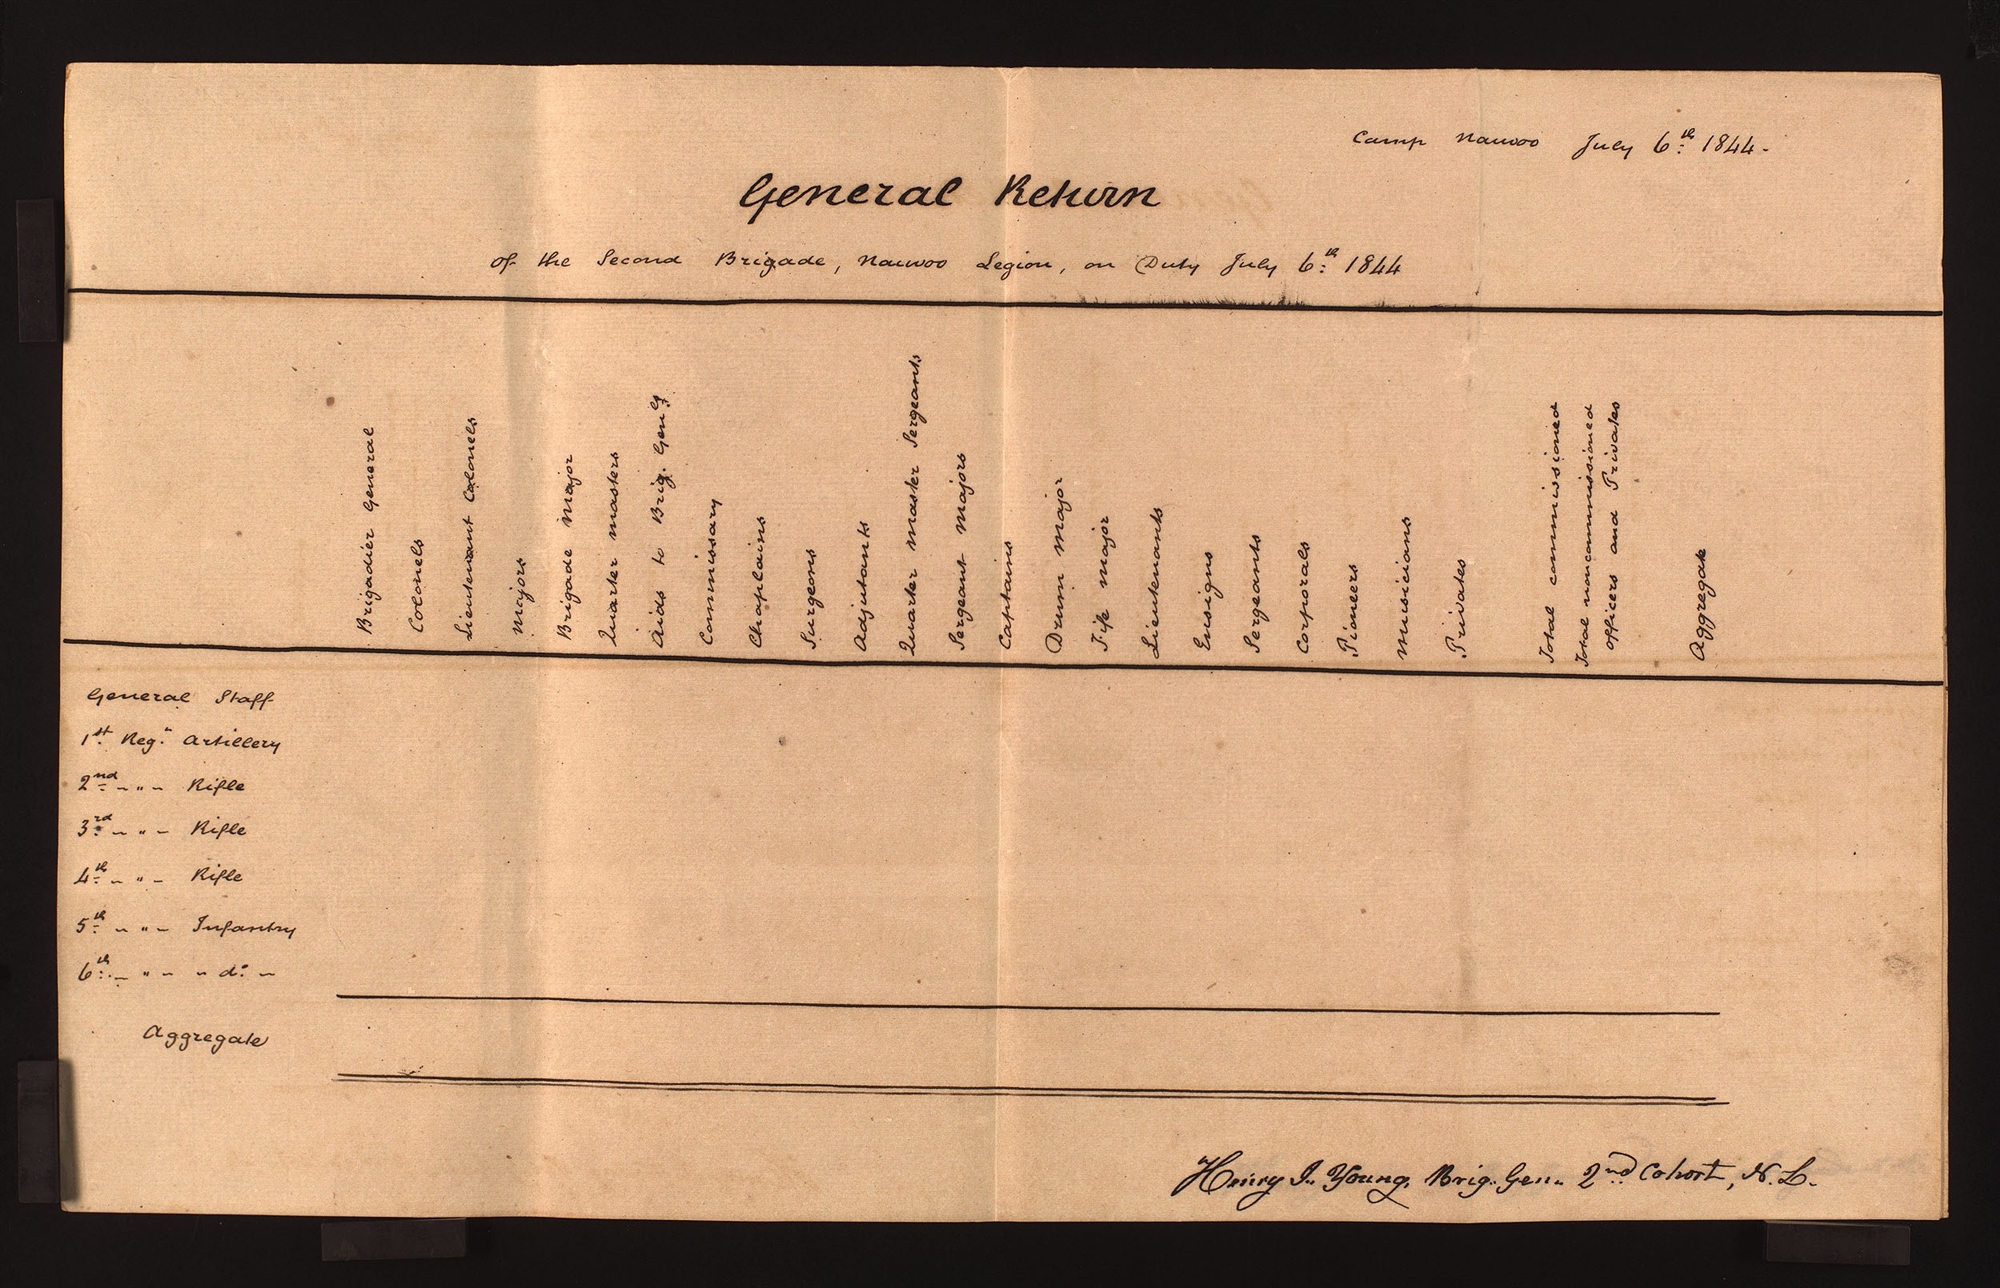 Camp Nauvoo July 6th 1844.
General Return
of the Second Brigade, Nauvoo Legion, on Duty July 6th 1844
Brigadier General
Colonels
Lieutenant Colonels
Majors
Brigade Major
Quarter masters
Aids to Brig. Genl
Commissary
Chaplains
Surgeons
Adjutants
Quarter Master Sergeants
Sergeant Majors
Captains
Drum Major
Fife Major
Lieutenants
Ensigns
Sergeants
Corporals
Pioneers
Musicians
Privates
Total commissioned
Total noncommissioned
officers and Privates
Aggregate
General Staff
1st Reg.t Artillery
2nd - " - Rifle
3rd - " - Rifle
4th - " - Rifle
5th - " - Infantry
6th - " - " do -
Aggregate
Henry J. Young, Brig. Gen. 2nd Cohort, N. L.